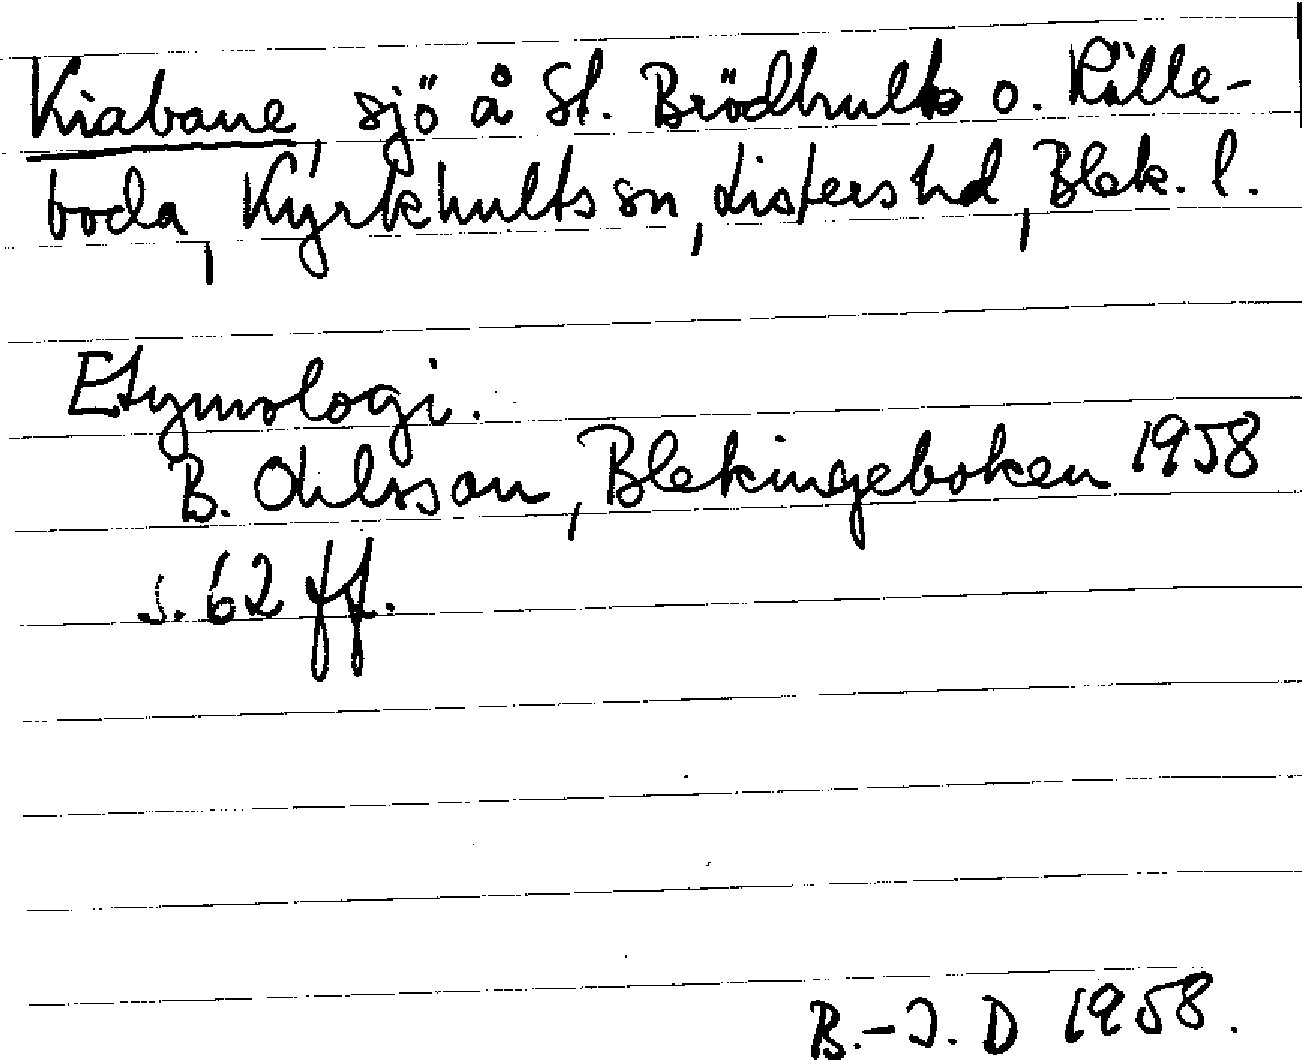 Kiabane, sjö å St. Brödhult o. Rålle-
boda, Kyrkhults sn, Listers hd, Blek. l.
Etymologi.
B. Ohlsson, Blekingeboken 1958
s. 62 ff.
B.-I. D 1958.